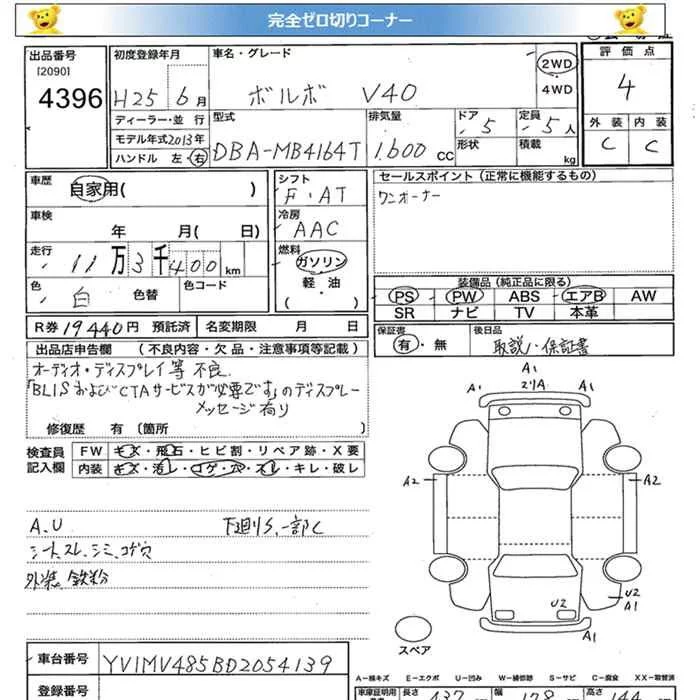 完全ゼロ切りコーナー
出品番号
[2090]
4396
初度登録年月
H25 6月
ディーラー・並行
モデル年式2013年
ハンドル 左・右
車名・グレード
ボルボ V40
2WD
4WD
型式
DBA-MB4164T
排気量
1.600 CC
ドア
5
形状
定員
5人
積載
kg
評価点
4
外装 内装
C C
車歴
自家用( )
車検
年 月( 日)
走行
11万3千400km
色
白 色替
色コード
シフト
F.AT
冷房
AAC
燃料
ガソリン
軽・油
( )
セールスポイント(正常に機能するもの)
ワンオーナー
装備品(純正品に限る)
PS PW ABS エアB AW
SR ナビ TV 本革
R券 19440円 預託済 名変期限 月 日
保証書
有・無
後日品
取説、保証書
出品店申告欄 (不良内容・欠品・注意事項等記載)
オーディオ・ディスプレイ等 不良.
「BLISおよびCTAサービスが必要です」のディスプレー
メッセージ有り
修復歴 有〔箇所 〕
検査員
記入欄
FW キズ・飛石・ヒビ割・リペア跡・X要
内装 キズ・汚レ・コゲ・穴・スレ・キレ・破レ
A.U 下廻りS.一部C
シートスレ、シミ、コゲ穴
外装鉄粉
A1
A1 21A A1
A2 A2
U2
U2
A1
A1
スペア
車台番号 YV1MV485BD2054139
登録番号
A−キズ E−エクボ U−凹み W−補修跡 S−サビ C−腐食 XX−取替済
車庫証明用 長さ 437 幅 178 高さ 144